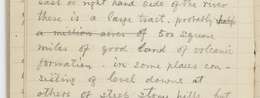 east or right hand side of the river
there is a large tract, probably half
a million acres or 500 square
miles of good land of volcanic
formation. in some places con-
sisting of level downs at
others of steep stony hills but